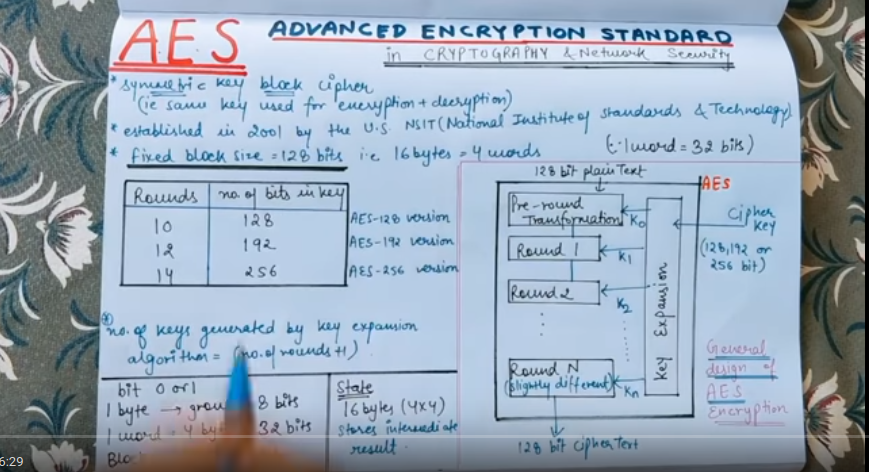 AES ADVANCED ENCRYPTION STANDARD
in CRYPTOGRAPHY & Network Security
* symmetric key block cipher
(ie same key used for encryption + decryption)
* established in 2001 by the U.S. NSIT (National Institute of standards & Technology)
* fixed block size = 128 bits i.e. 16 bytes = 4 words
(∵ 1 word = 32 bits)
Rounds no. of bits in key
10 128 AES-128 version
12 192 AES-192 version
14 256 AES-256 version
* no. of keys generated by key expansion
algorithm = (no. of rounds + 1)
bit 0 or 1
1 byte → 8 bits
1 word = 4 32 bits
State
16 bytes (4x4)
stores intermediate
result.
128 bit plain Text
AES
Pre-round
Transformation
K0
Round 1
K1
Round 2
K2
Round N
(slightly different)
Kn
Key Expansion
Cipher
key
(128,192 or
256 bit)
128 bit cipher Text
General
design of
AES
Encryption
6:29